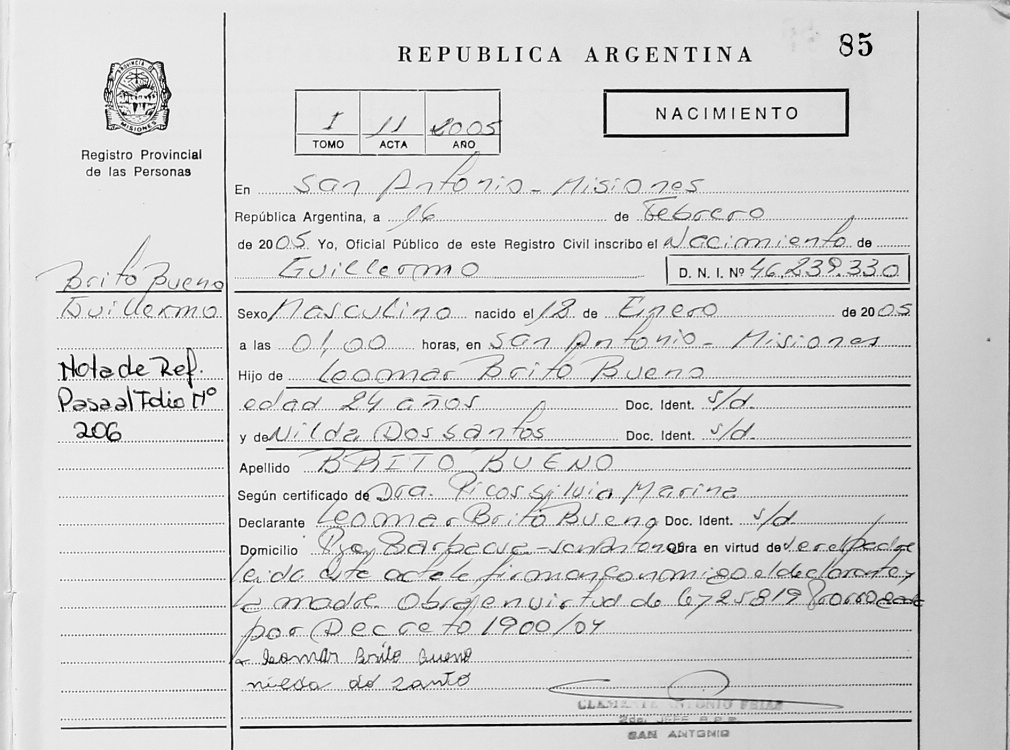 REPUBLICA ARGENTINA
85
PROVINCIA DE MISIONES
Registro Provincial
de las Personas
I 11 2005
TOMO ACTA AÑO
NACIMIENTO
En San Antonio - Misiones
República Argentina, a 16 de Febrero
de 2005 Yo, Oficial Público de este Registro Civil inscribo el Nacimiento de
Guillermo D. N. I. Nº 46.239.330
Brito Bueno
Guillermo
Sexo Masculino nacido el 12 de Enero de 2005
a las 01,00 horas, en San Antonio - Misiones
Nota de Ref.
Pasa al Folio Nº
206
Hijo de Leomar Brito Bueno
edad 24 años Doc. Ident. s/d.
y de Nilda Dos Santos Doc. Ident. s/d.
Apellido BRITO BUENO
Según certificado de Dra. Picos Silvia Marina
Declarante Leomar Brito Bueno Doc. Ident. s/d.
Domicilio Barbacua - San Antonio Obra en virtud de ser el padre
leida este acta la firman conmigo el declarante y
la madre. Obra en virtud de 6725819
por Decreto 1900/04
Leomar Brito Bueno
nilda do santo
CLEMENTE ANTONIO
2do. JEFE R.P.P.
SAN ANTONIO